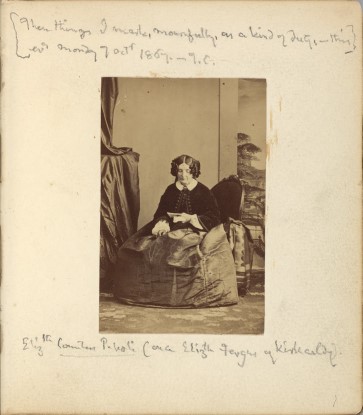 [These things I mark, mournfully, as a kind of duty,—this
evg monday 7 octr 1867.—T.C.]
Elizth Countess Pepoli (once Elizth Fergus of Kirkcaldy).